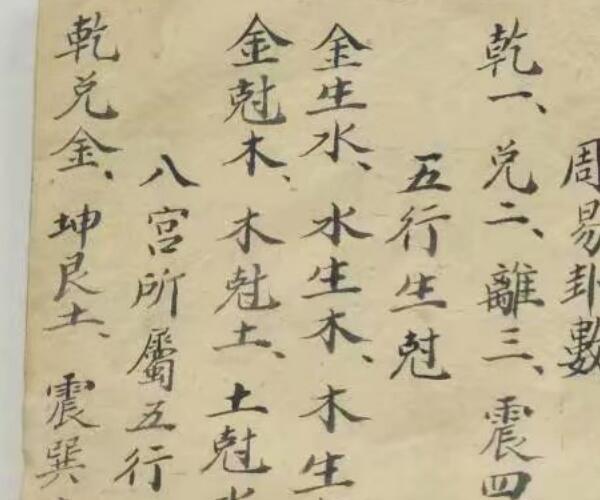 周易卦數
乾一、兌二、離三、震四
五行生尅
金生水、水生木、木生
金尅木、木尅土、土尅水
八宮所屬五行
乾兌金、坤艮土、震巽